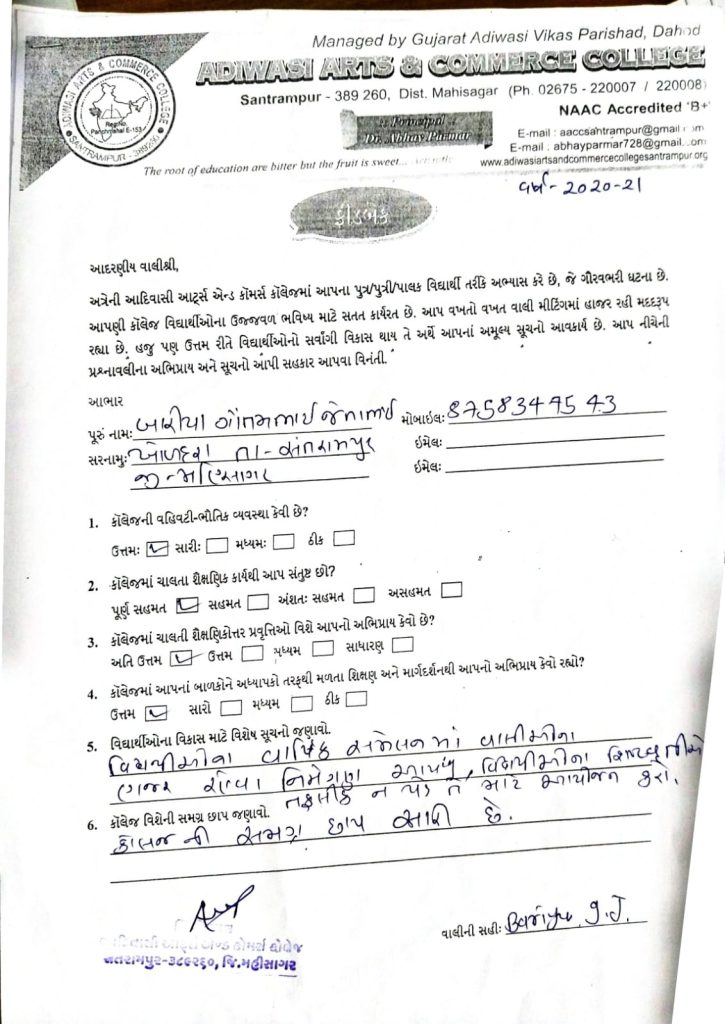 Managed by Gujarat Adiwasi Vikas Parishad, Dahod
ADIWASI ARTS & COMMERCE COLLEGE
Santrampur - 389 260, Dist. Mahisagar (Ph. 02675 - 220007 / 220008)
NAAC Accredited 'B+'
Principal
Dr. Abhay Parmar
E-mail : aaccsahtrampur@gmail
E-mail : abhayparmar728@gmail.com
www.adiwasiartsandcommercecollegesantrampur.org
ADIWASI ARTS & COMMERCE COLLEGE
Reg.No.
Panchmahal E-153
SANTRAMPUR - 389260
The root of education are bitter but the fruit is sweet...
વર્ષ - 2020-21
ફીડબેક
આદરણીય વાલીશ્રી,
અત્રેની આદિવાસી આર્ટ્સ એન્ડ કૉમર્સ કૉલેજમાં આપના પુત્ર/પુત્રી/પાલક વિદ્યાર્થી તરીકે અભ્યાસ કરે છે, જે ગૌરવભરી ઘટના છે.
આપણી કૉલેજ વિદ્યાર્થીઓના ઉજ્જવળ ભવિષ્ય માટે સતત કાર્યરત છે. આપ વખતો વખત વાલી મીટિંગમાં હાજર રહી મદદરૂપ
રહ્યા છે. હજુ પણ ઉત્તમ રીતે વિદ્યાર્થીઓનો સર્વાંગી વિકાસ થાય તે અર્થે આપનાં અમૂલ્ય સૂચનો આવકાર્ય છે. આપ નીચેની
પ્રશ્નાવલીના અભિપ્રાય અને સૂચનો આપી સહકાર આપવા વિનંતી.
આભાર
પૂરું નામઃ બારીયા ગૌતમભાઈ જેનાભાઈ મોબાઇલઃ 8758344543
સરનામુઃ તા - સંતરામપુર ઇમેલઃ
જી - મહિસાગર ઇમેલઃ
1. કૉલેજની વહિવટી-ભૌતિક વ્યવસ્થા કેવી છે?
ઉત્તમઃ સારીઃ મધ્યમઃ ઠીક
2. કૉલેજમાં ચાલતા શૈક્ષણિક કાર્યથી આપ સંતુષ્ટ છો?
પૂર્ણ સહમત સહમત અંશતઃ સહમત અસહમત
3. કૉલેજમાં ચાલતી શૈક્ષણિકોત્તર પ્રવૃત્તિઓ વિશે આપનો અભિપ્રાય કેવો છે?
અતિ ઉત્તમ ઉત્તમ મધ્યમ સાધારણ
4. કૉલેજમાં આપનાં બાળકોને અધ્યાપકો તરફથી મળતા શિક્ષણ અને માર્ગદર્શનથી આપનો અભિપ્રાય કેવો રહ્યો?
ઉત્તમ સારો મધ્યમ ઠીક
5. વિદ્યાર્થીઓના વિકાસ માટે વિશેષ સૂચનો જણાવો.
વિદ્યાર્થીઓના વાર્ષિક સંમેલનમાં વાલીઓના
હાજર રહેવા નિમંત્રણ આપવુ, વિદ્યાર્થીઓના
તકલીફ ન પડે તે માટે આયોજન કરો.
6. કૉલેજ વિશેની સમગ્ર છાપ જણાવો.
કોલેજ ની સમગ્ર છાપ સારી છે.
વાલીની સહીઃ Bariya G.J.
આદિવાસી આર્ટ્સ એન્ડ કોમર્સ કોલેજ
સંતરામપુર-૩૮૯૨૬૦, જિ.મહીસાગર